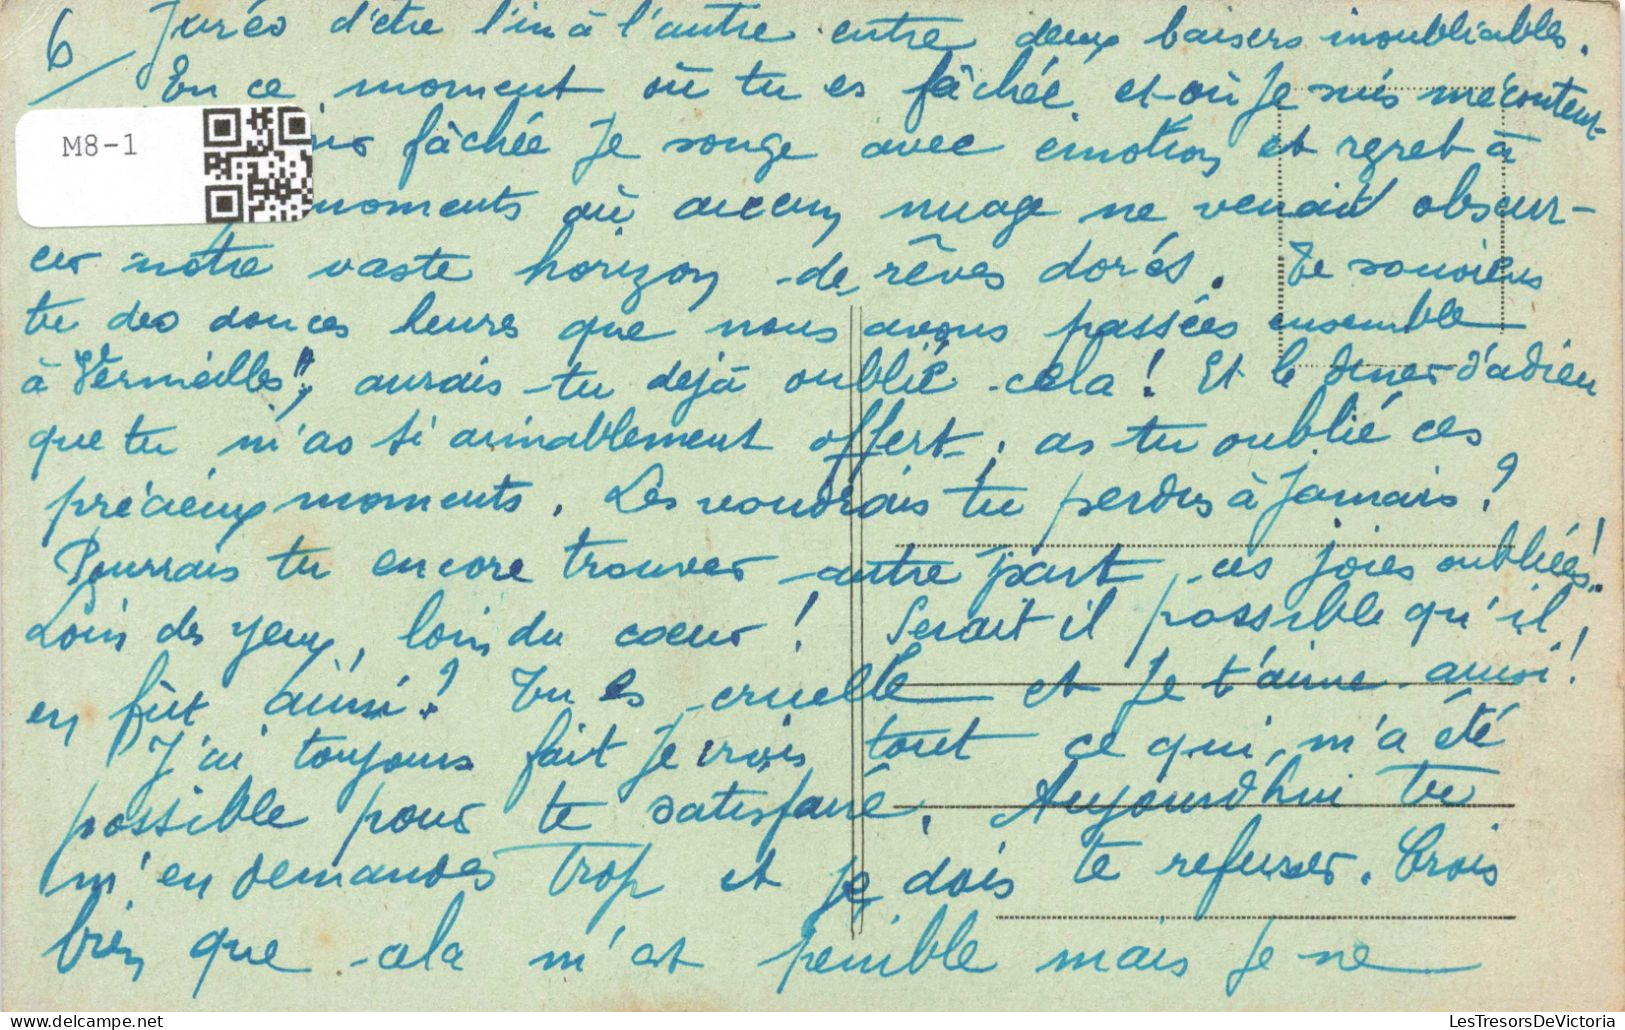 6/ Jurés d'être l'un à l'autre entre deux baisers inoubliables.
En ce moment où tu es fâchée et où je suis mécontent
M8-1
fâchée je songe avec émotion et regret à
moments où aucun nuage ne venait obscur-
cir notre vaste horizon de rêves dorés. Te souviens
tu des douces heures que nous avons passées ensemble
à "Vermeilles", aurais-tu déjà oublié cela ! Et le dîner d'adieu
que tu m'as si aimablement offert, as tu oublié ces
précieux moments. Les voudrais tu perdus à jamais ?
Pourrais tu encore trouver autre part ces joies oubliées !
Loin des yeux, loin du coeur ! Serait il possible qu'il
en fût ainsi ? Tu es cruelle et je t'aime aussi !
J'ai toujours fait je crois tout ce qui m'a été
possible pour te satisfaire. Aujourd'hui tu
m'en demandes trop et je dois te refuser. Crois
bien que cela m'est penible mais je ne
LesTresorsDeVictoria